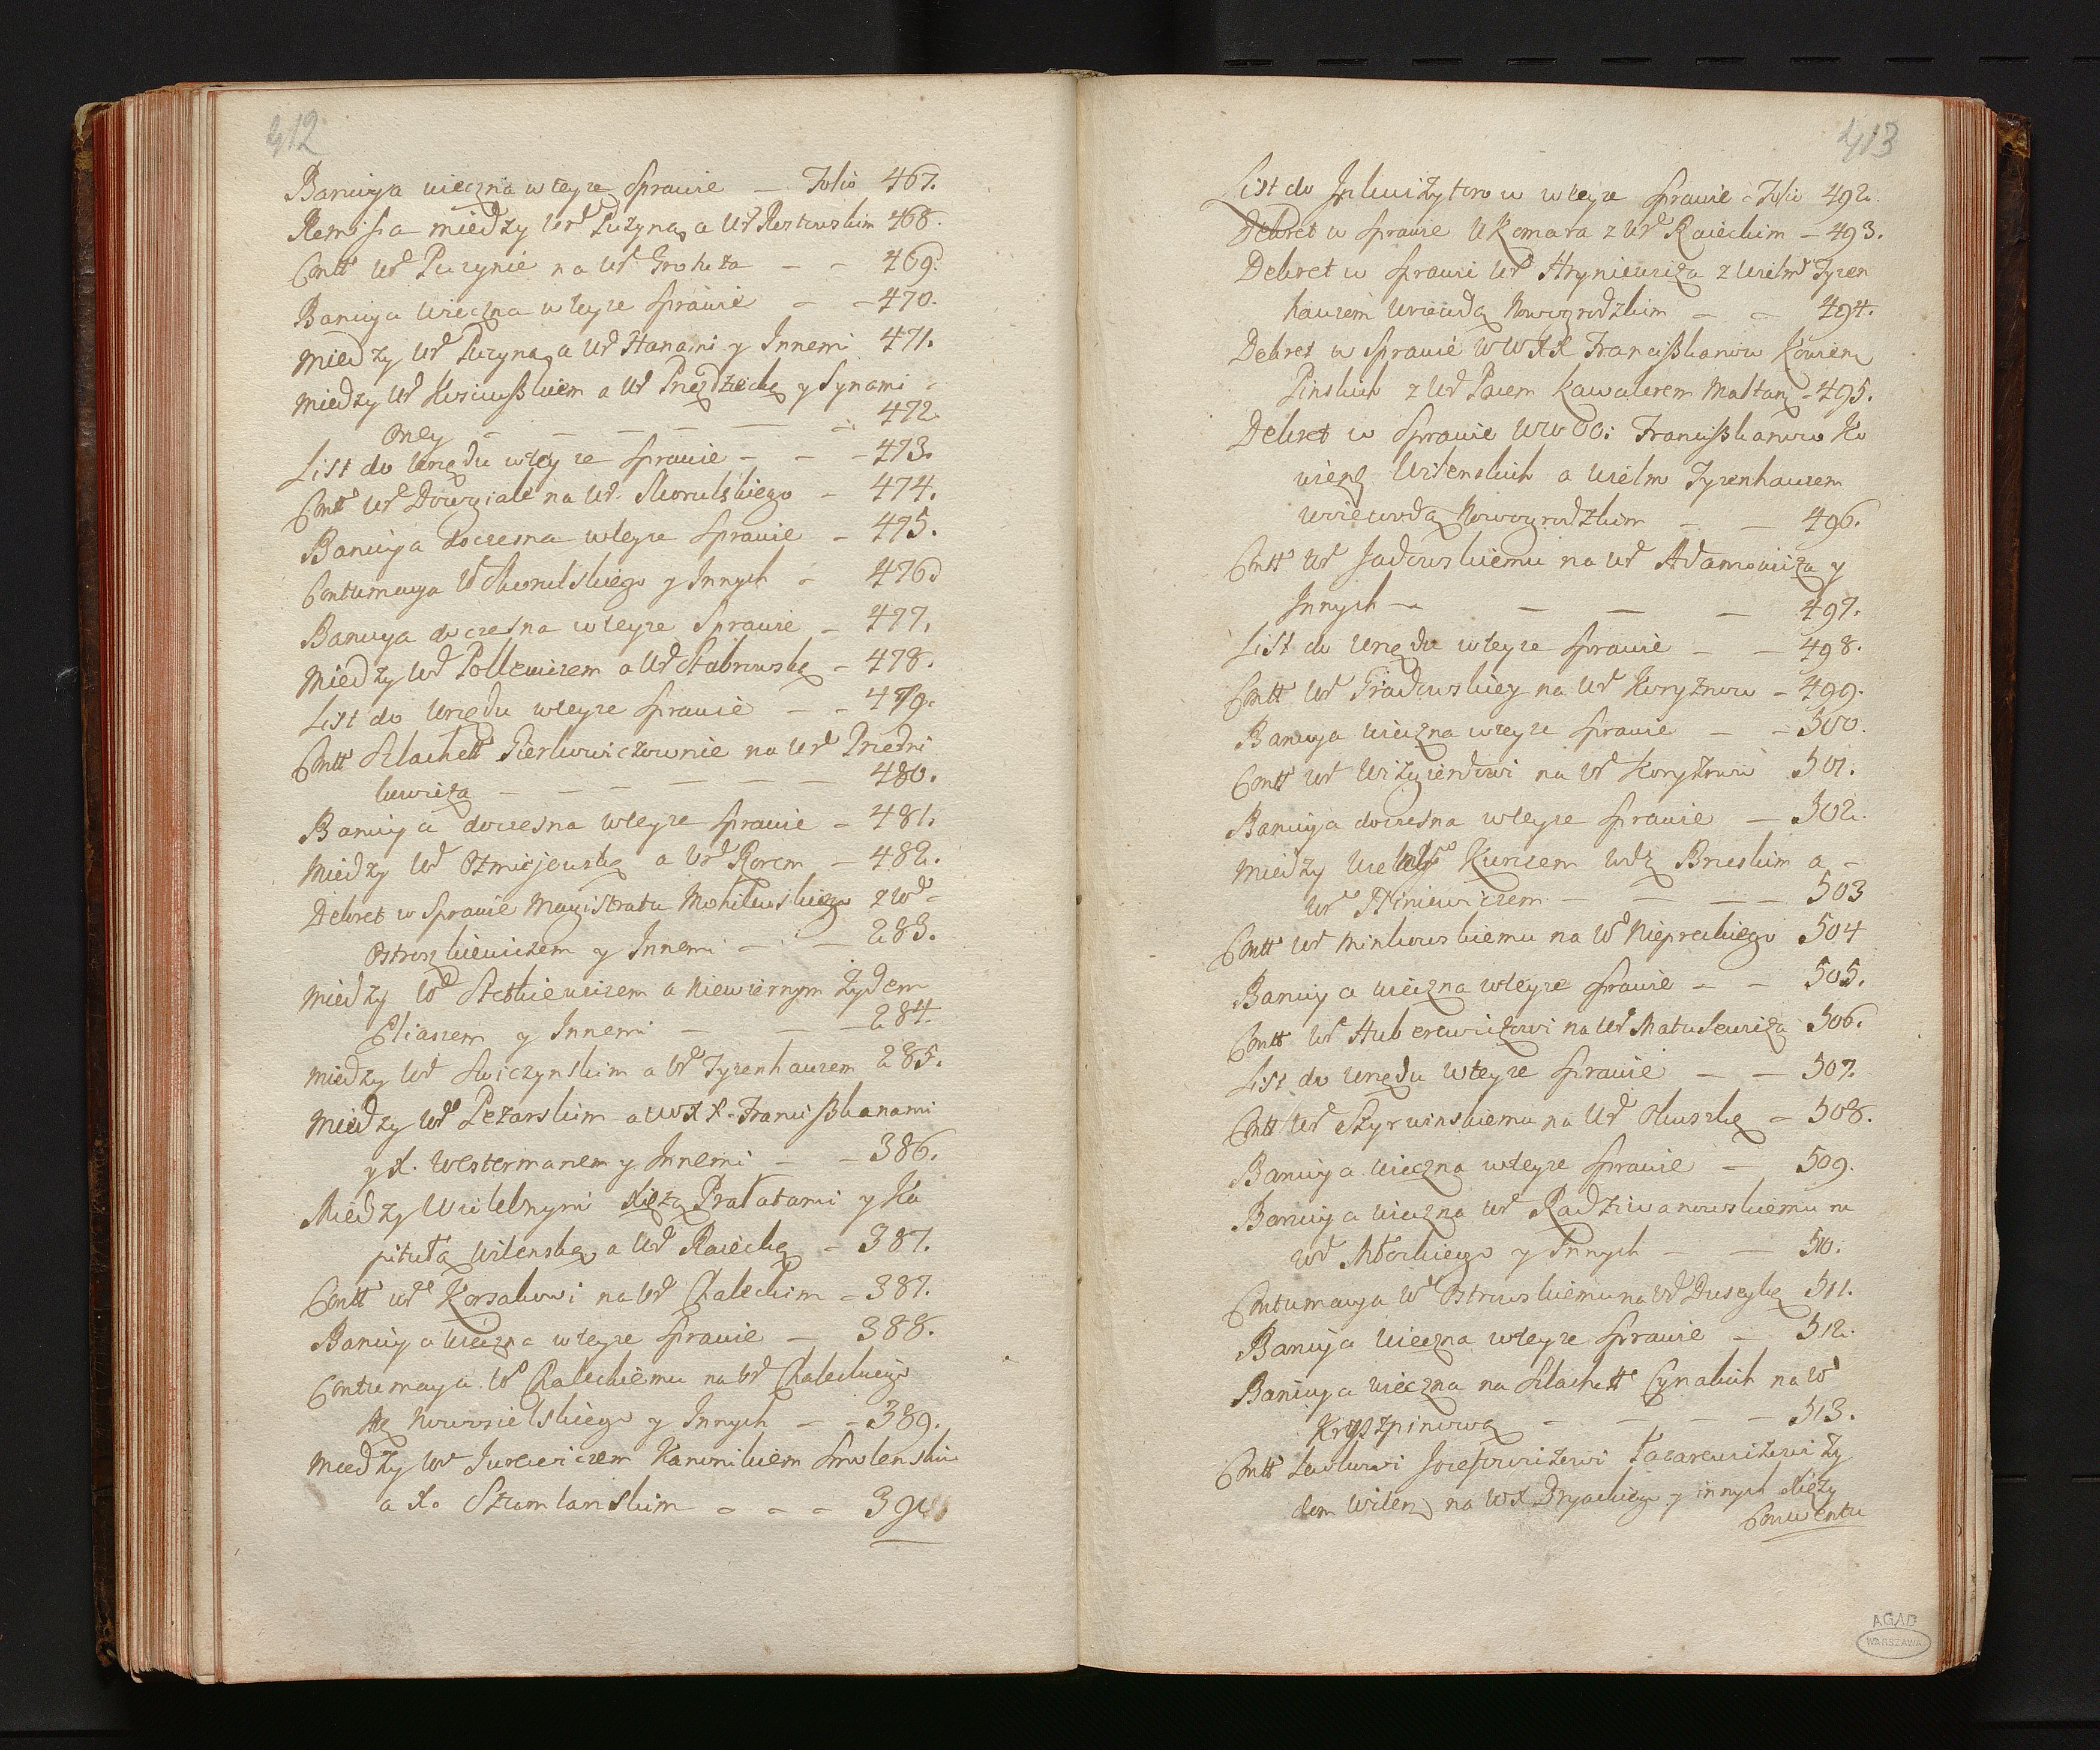 412
Banicya wieczna w teyze Sprawie — Folio 467.
Remissa miedzy Ur Puzyną a Ur Rostowskim 468.
Contt Ur Puzynie na Ur Grohoza — — 469.
Banicya wieczna w teyze Sprawie — — 470.
Miedzy Ur Puzyną a Ur Hanami y Innemi 471.
Miedzy Ur Kosciuszkiem a Ur Przezdziecką y Synami
Oney — — — — — — 472
List do Urzędu w tey ze Sprawie — — — 473.
Contt Ur Dowgiale na Ur Skorulskiego — 474.
Banicya doczesna w teyze Sprawie — 475.
Contumacya Ur Skorulskiego y Innych — 476.
Banicya doczesna w teyze Sprawie — 477.
Miedzy Ur Pollewiczem a Ur Stabrowską — 478.
List do Urzędu w teyze Sprawie — — 479.
Contt Szlachett Pierkowiczownie na Ur Przedni
kowicza — — — — — — 480.
Banicya doczesna w teyze Sprawie — 481.
Miedzy Ur Ozmiejowską a Ur Rorem — 482.
Dekret w Sprawie Magistratu Mohilewskiego z Ur
Ostroszkiewiczem y Innemi — — 283.
Miedzy Ur Steckiewiczem a Niewiernym Żydem
Eliaszem y Innemi — — — 284.
Miedzy Ur Swiczynskim a Ur Tyzenhauzem 285.
Miedzy Ur Pezarskim a WXX. Franciszkanami
y X. Westermanem y Innemi — — 386.
Miedzy Wielebnymi Xięzą Prałatami y Ka
pitułą Wilenską a Ur Raiecką — 387.
Contt Ur Korsakowi na Ur Chaleckim — 387.
Banicya wieczna w teyze Sprawie — 388.
Contumacya Ur Chaleckiemu na Ur Chaleckiego
Nowosielskiego y Innych — — 389.
Miedzy Ur Jurewiczem Kanonikiem Smolenskim
a X. Szumlanskim — — — 390
413
List do Inkwizytorow w teyze Sprawie — Folio 492.
Dekret w Sprawie U Komara z Ur Raieckim — 493.
Dekret w Sprawi Ur Hryniewicza z Wielm Tyzen
hauzem Wojewodą Nowogrodzkim — — 494.
Dekret w Sprawie WWXX Franciszkanow Konwen
Pinskich z Ur Pacem Kawalerem Maltan — 495.
Dekret w Sprawie WW OO: Franciszkanow Ko
wienz Wilenskich a Wielm Tyzenhauzem
Woiewodą Nowogrodzkim — — 496.
Contt Ur Jadowskiemu na Ur Adamowicza y
Innych — — — — 497.
List do Urzędu w teyze Sprawie — — 498.
Contt Ur Gradowskiey na Ur Koryznow — 499.
Banicya wieczna w teyze Sprawie — — 500.
Contt Ur Wizgierdowi na Ur Koryznow 501.
Banicya doczesna w teyze Sprawie — 502.
Miedzy Wielm Kurczem Wdz Brzeskim a —
Ur Hiniewiczem — — — — 503
Contt Ur Minkowskiemu na Ur Nieprzeckiego 504
Banicya wieczna w teyze Sprawie — — 505.
Contt Ur Huberewiczowi na Ur Matusewicza 506.
List do Urzędu w teyze Sprawie — — 507.
Contt Ur Szyrwinskiemu na Ur Okuszkę — 508.
Banicya wieczna w teyze Sprawie — 509.
Banicya wieczna Ur Radziwanowskiemu na
Ur Młockiego y Innych — — 510.
Contumacya Ur Ostrowskiemu na Ur Dusezkę 511.
Banicya wieczna w teyze Sprawie — 512.
Banicya wieczna na Szlachett Cynakich na Ur
Kryszpinową — — — — 513.
Contt Lewkowi Jozefowiczowi Łazarewiczowi Ży
dom Wilenz na WX Dryackiego y innych Xięży
Conwentu
AGAD
WARSZAWA